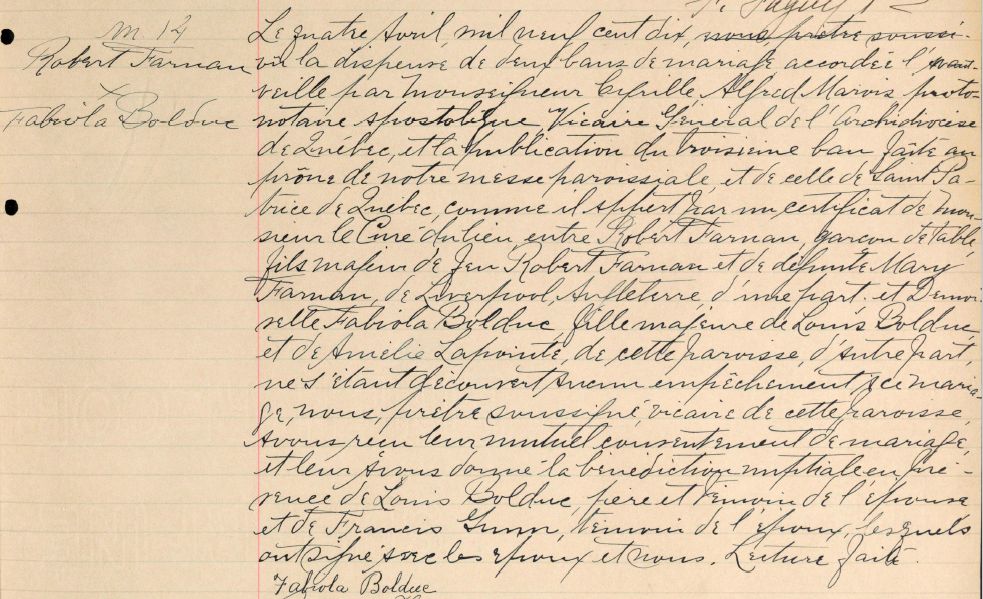 M. 14
Robert Farnan
Fabiola Bolduc
Le quatre Avril, mil neuf cent dix, nous, prêtre soussi-
vu la dispense de deux bans de mariage accordée l'Avant-
veille par Monseigneur Cyrille Alfred Marois proto-
notaire Apostolique Vicaire Général de l'Archidiocèse
de Québec, et la publication du troisième ban faite au
prône de notre messe paroissiale, et de celle de Saint Pa-
trice de Québec, comme il appert par un certificat de Mon-
sieur le Curé du lieu entre Robert Farnan, garçon de table
fils majeur de feu Robert Farnan et de défunte Mary
Farnan, de Liverpool, Angleterre d'une part. et Demoi-
selle Fabiola Bolduc, fille majeure de Louis Bolduc
et de Amélie Lapointe, de cette paroisse, d'autre part,
ne s'étant découvert aucun empêchement à ce maria-
ge, nous, prêtre soussigné, vicaire de cette paroisse
Avons reçu leur mutuel consentement de mariage,
et leur Avons donné la bénédiction nuptiale en pré-
sence de Louis Bolduc, père et témoin de l'épouse
et de Francis Gunn, témoin de l'époux, lesquels
ont signé avec les époux et nous. Lecture faite.
Fabiola Bolduc